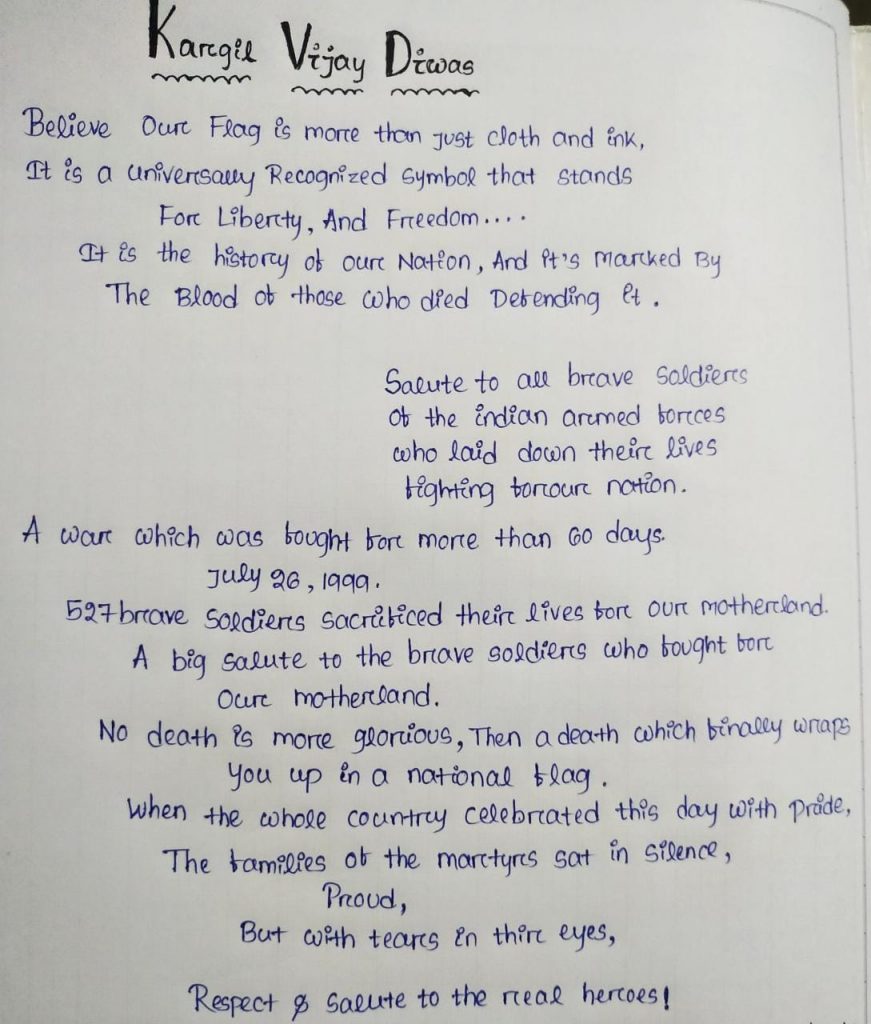 Kargil Vijay Diwas
Believe Our Flag is more than just cloth and ink,
It is a universally Recognized symbol that stands
For Liberty, And Freedom....
It is the history of our Nation, And it's Marked By
The Blood of those who died Defending it.
Salute to all brave soldiers
of the indian armed forces
who laid down their lives
fighting for our nation.
A war which was fought for more than 60 days.
July 26, 1999.
527 brave soldiers sacrificed their lives for our motherland.
A big salute to the brave soldiers who fought for
our motherland.
No death is more glorious, Then a death which finally wraps
you up in a national flag.
When the whole country celebrated this day with pride,
The families of the martyrs sat in silence,
Proud,
But with tears in thir eyes,
Respect & salute to the real heroes!